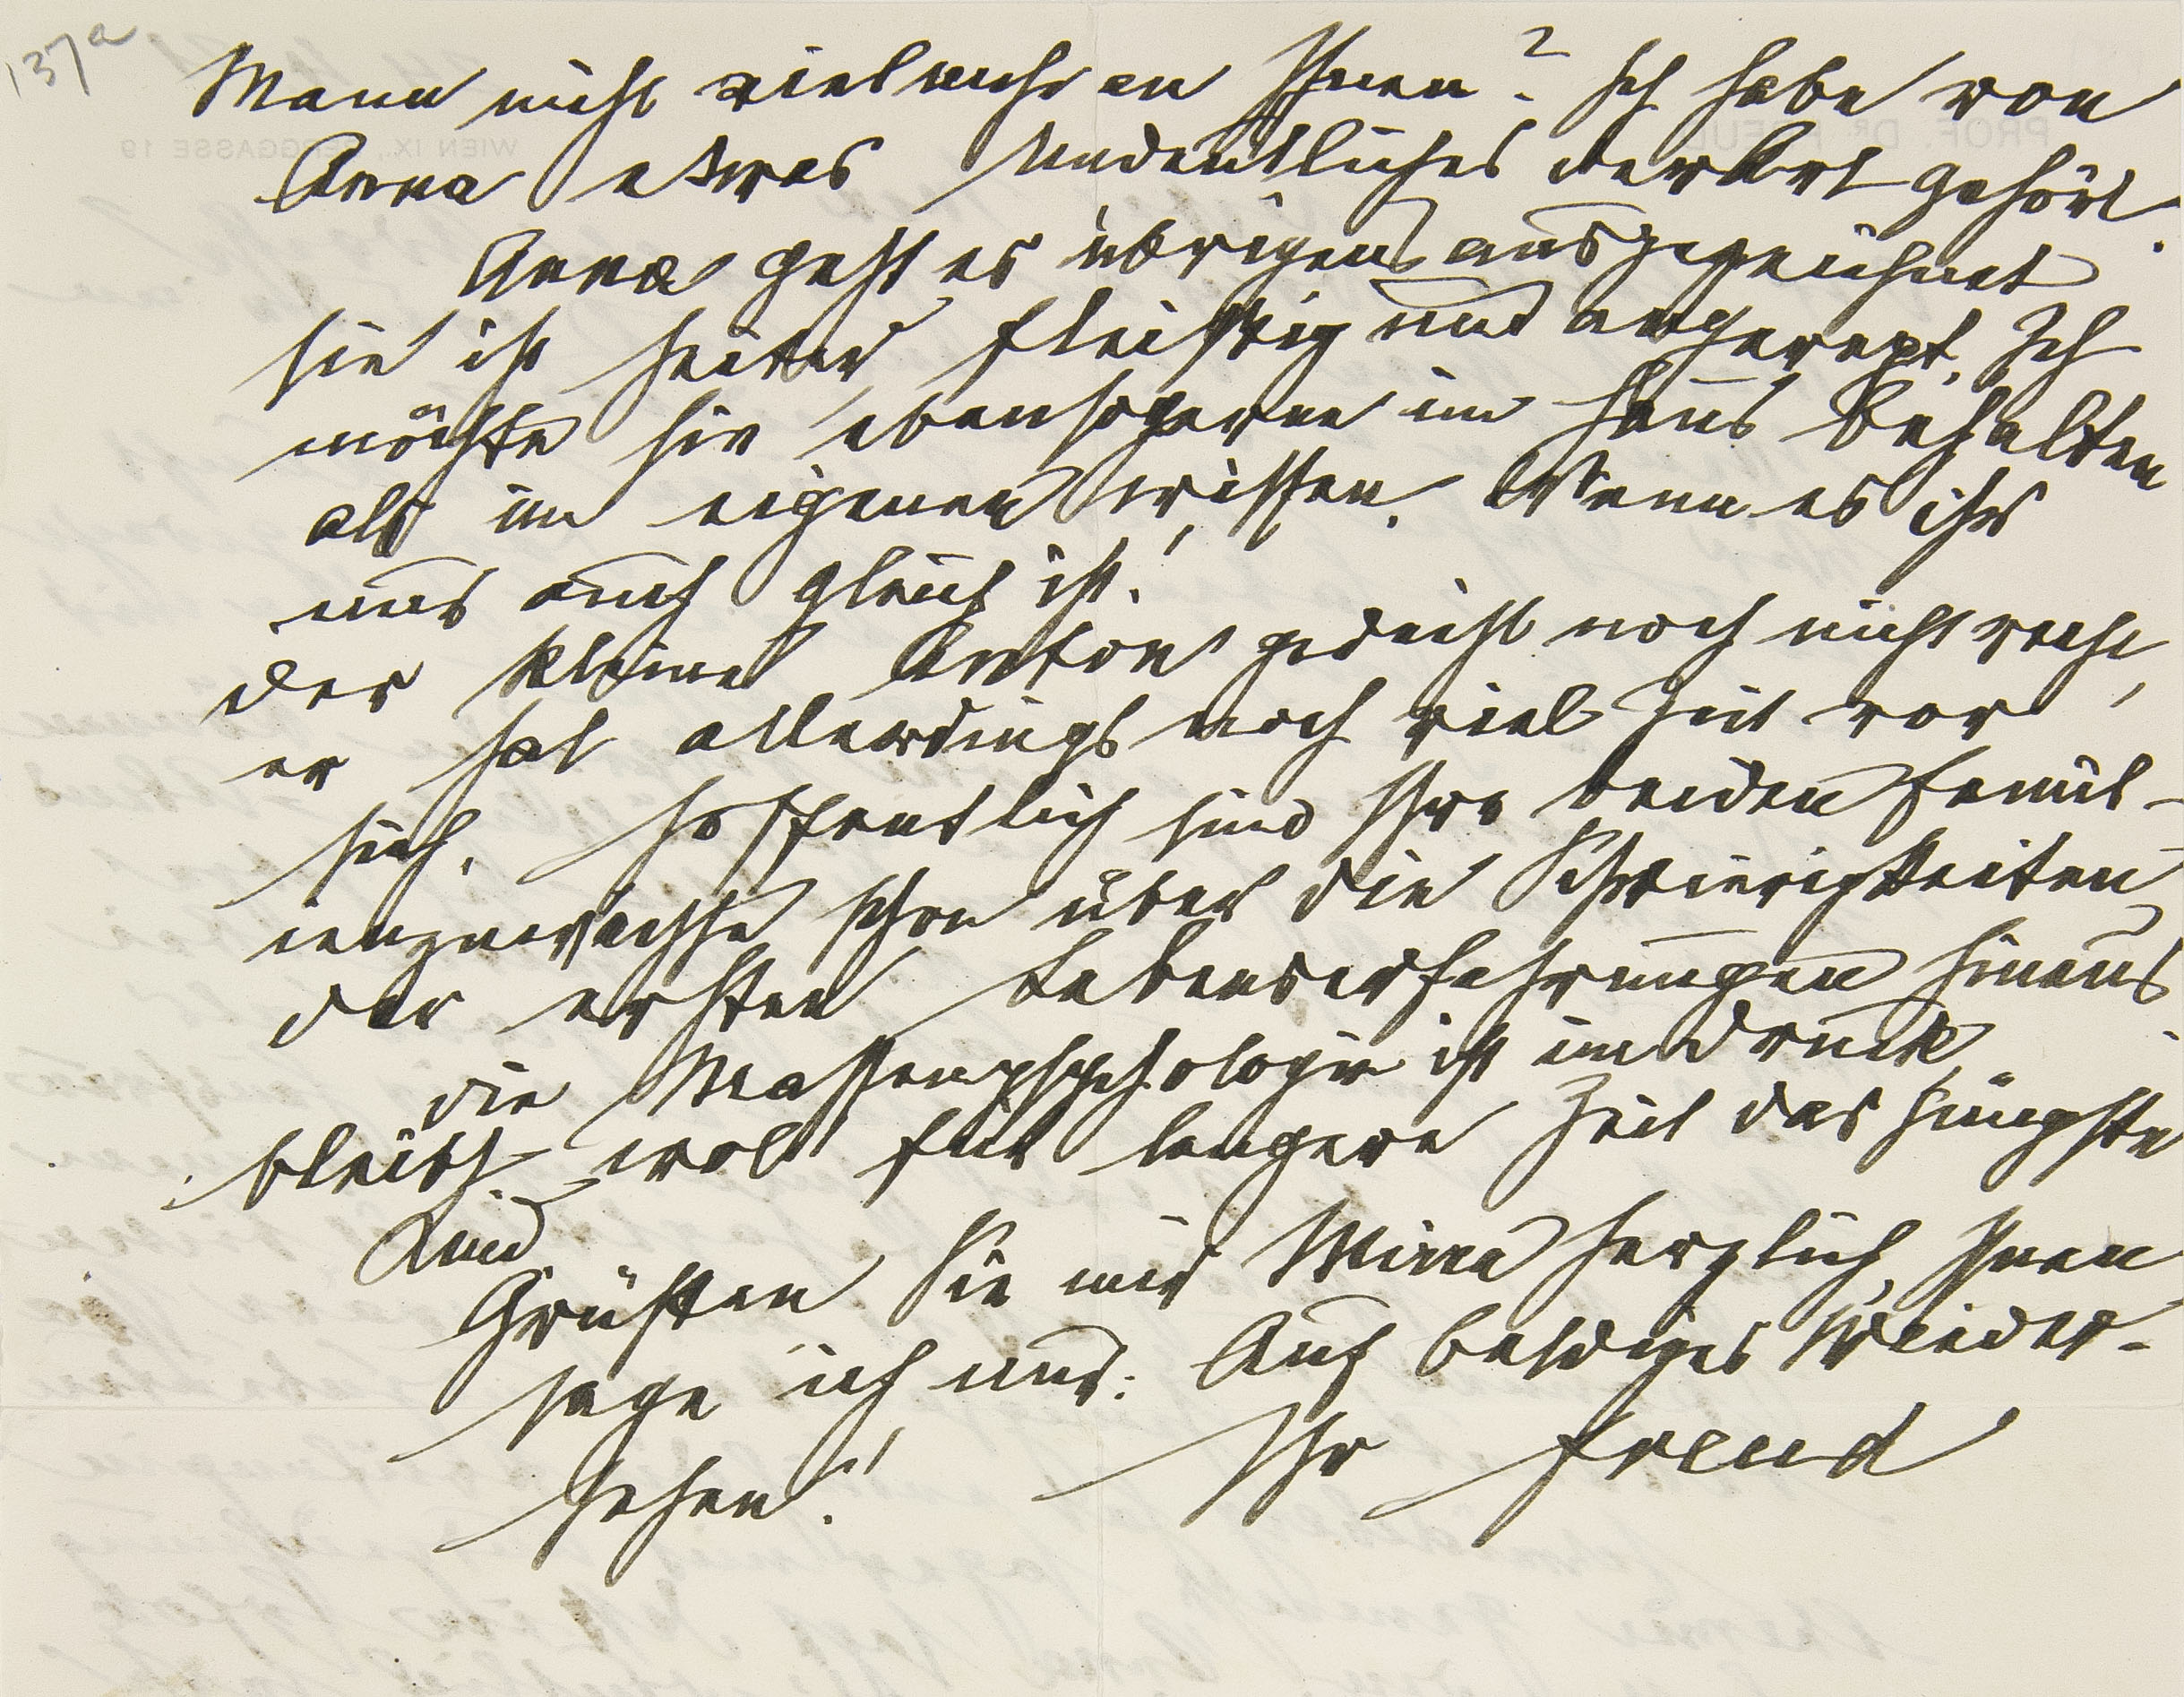 137a
Mann nicht vielmehr an Ihnen? Ich habe von
Anna etwas Undeutliches der Art gehört.
Anna geht es übrigens ausgezeichnet
sie ist heiter, fleißig und angeregt. Ich
möchte sie ebensogerne im Haus behalten
als im eigenen wissen. Wenn es ihr
nur auch gleich ist!
Der kleine Anton gedeiht noch nicht recht,
er hat allerdings noch viel Zeit vor
sich. Hoffentlich sind Ihre beiden Famil-
ienzuwächse schon über die Schwierigkeiten
der ersten Lebenserfahrungen hinaus.
Die Massenpsychologie ist im Druck
bleibt wol für längere Zeit das jüngste
Kind.
Grüßen Sie mir Mirra herzlich, Ihnen
sage ich nur: Auf baldiges Wieder-
sehen!
Ihr Freud
PROF. DR. FREUD
WIEN IX., BERGGASSE 19